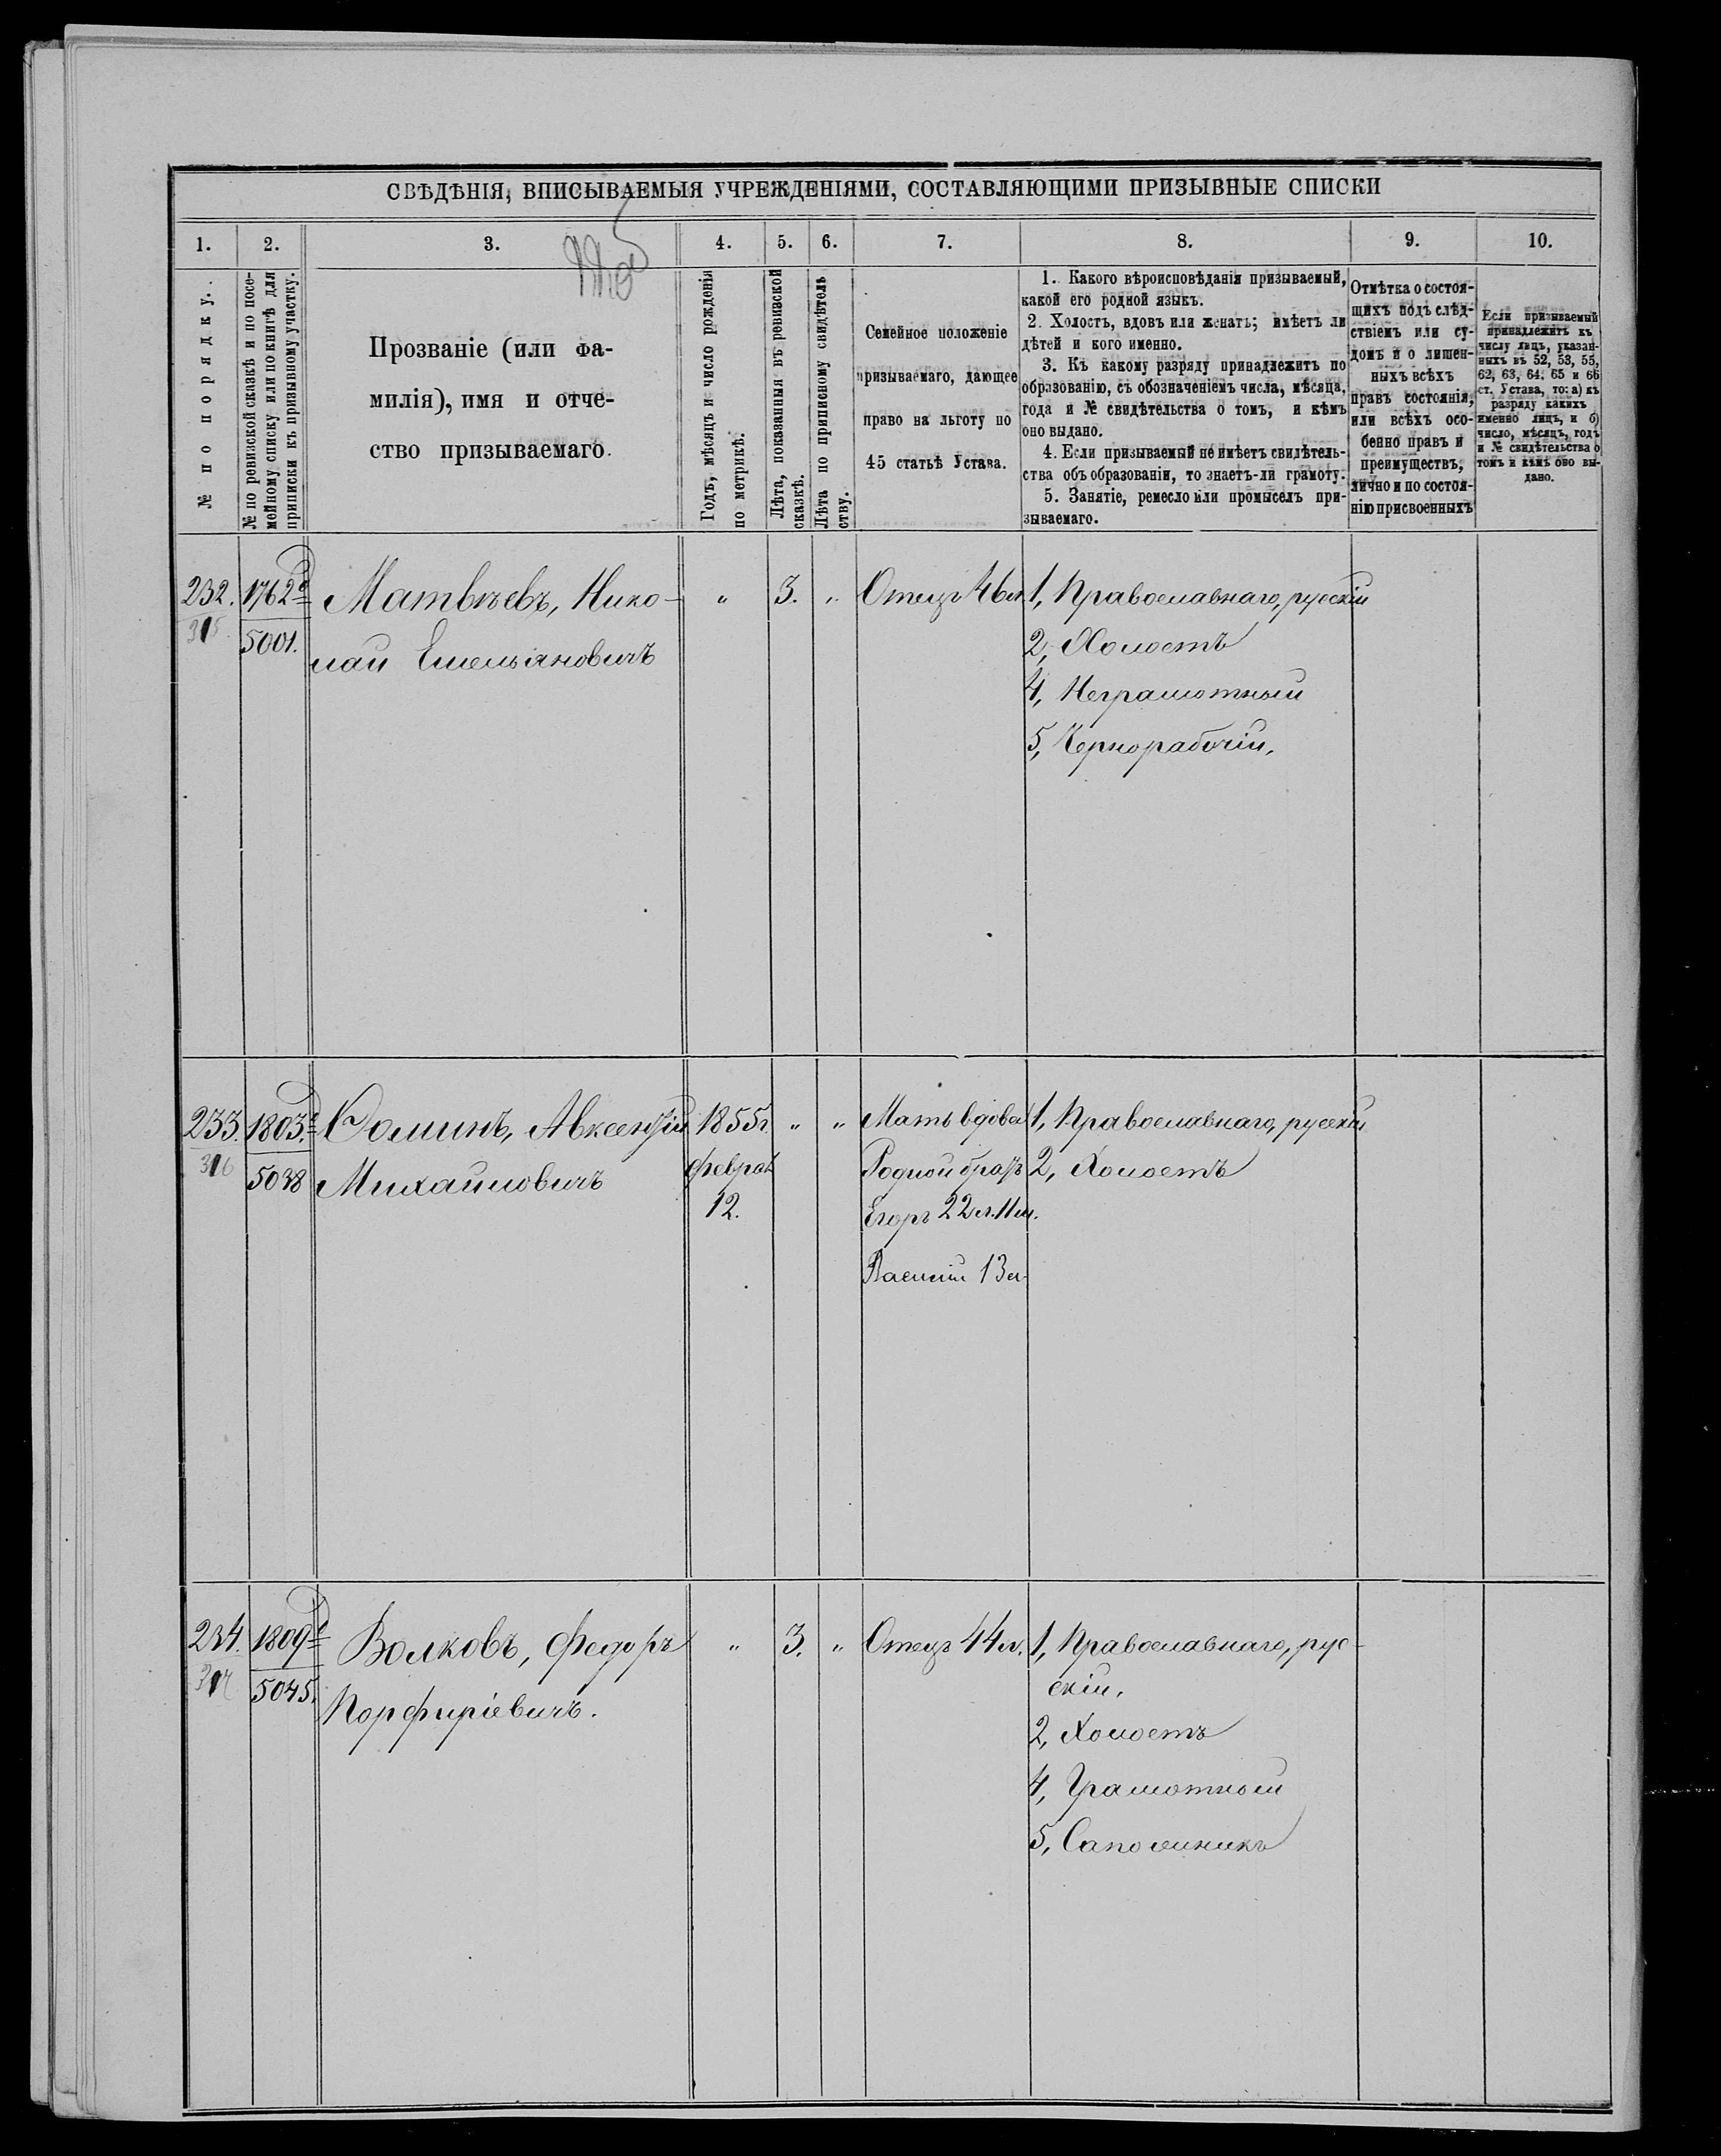 СВѢДѢНІЯ, ВПИСЫВАЕМЫЯ УЧРЕЖДЕНІЯМИ, СОСТАВЛЯЮЩИМИ ПРИЗЫВНЫЕ СПИСКИ
1. 2. 3. 4. 5. 6. 7. 8. 9. 10.
№ по порядку.
№ по ревизской сказкѣ и по посе-
мейному списку или по книгѣ для
приписки къ призывному участку.
Прозваніе (или фа-
милія), имя и отче-
ство призываемаго.
Годъ, мѣсяцъ и число рожденія
по метрикѣ.
Лѣта, показанныя въ ревизской
сказкѣ.
Лѣта по приписному свидѣтель
ству.
Семейное положеніе
призываемаго, дающее
право на льготу по
45 статьѣ Устава.
1. Какого вѣроисповѣданія призываемый,
какой его родной языкъ.
2. Холостъ, вдовъ или женатъ; имѣетъ ли
дѣтей и кого именно.
3. Къ какому разряду принадлежитъ по
образованію, съ обозначеніемъ числа, мѣсяца,
года и № свидѣтельства о томъ, и кѣмъ
оно выдано.
4. Если призываемый не имѣетъ свидѣтель-
ства объ образованіи, то знаетъ-ли грамоту.
5. Занятіе, ремесло или промыселъ при-
зываемаго.
Отмѣтка о состоя-
щихъ подъ слѣд-
ствіемъ или су-
домъ и о лишен-
ныхъ всѣхъ
правъ состоянія,
или всѣхъ осо-
бенно правъ и
преимуществъ,
лично и по состоя-
нію присвоенныхъ
Если призываемый
принадлежитъ къ
числу лицъ, указан-
ныхъ въ 52, 53, 55,
62, 63, 64, 65 и 66
ст. Устава, то: а) къ
разряду какихъ
именно лицъ, и б)
число, мѣсяцъ, годъ
и № свидѣтельства о
томъ и кѣмъ оно вы-
дано.
232. 1762 Матвѣевъ, Нико- „ 3. „ Отецъ 46 л. 1, Православнаго, русскій
315. 5001. лай Емельяновичъ
2, Холостъ
4, Неграмотный
5, Чернорабочій.
233. 1803 Фоминъ, Авксентій 1855 г. „ „ Мать вдова 1, Православнаго, русскій
316 5038 Михайловичъ феврал. Родной братъ 2, Холостъ
12. Егоръ 22 л. 11 м.
Василій 13 л.
234. 1809 Волковъ, Федоръ „ 3. „ Отецъ 44 л. 1, Православнаго, рус-
317 5045. Порфиріевичъ.
скій.
2, Холостъ
4, Грамотный
5, Сапожникъ